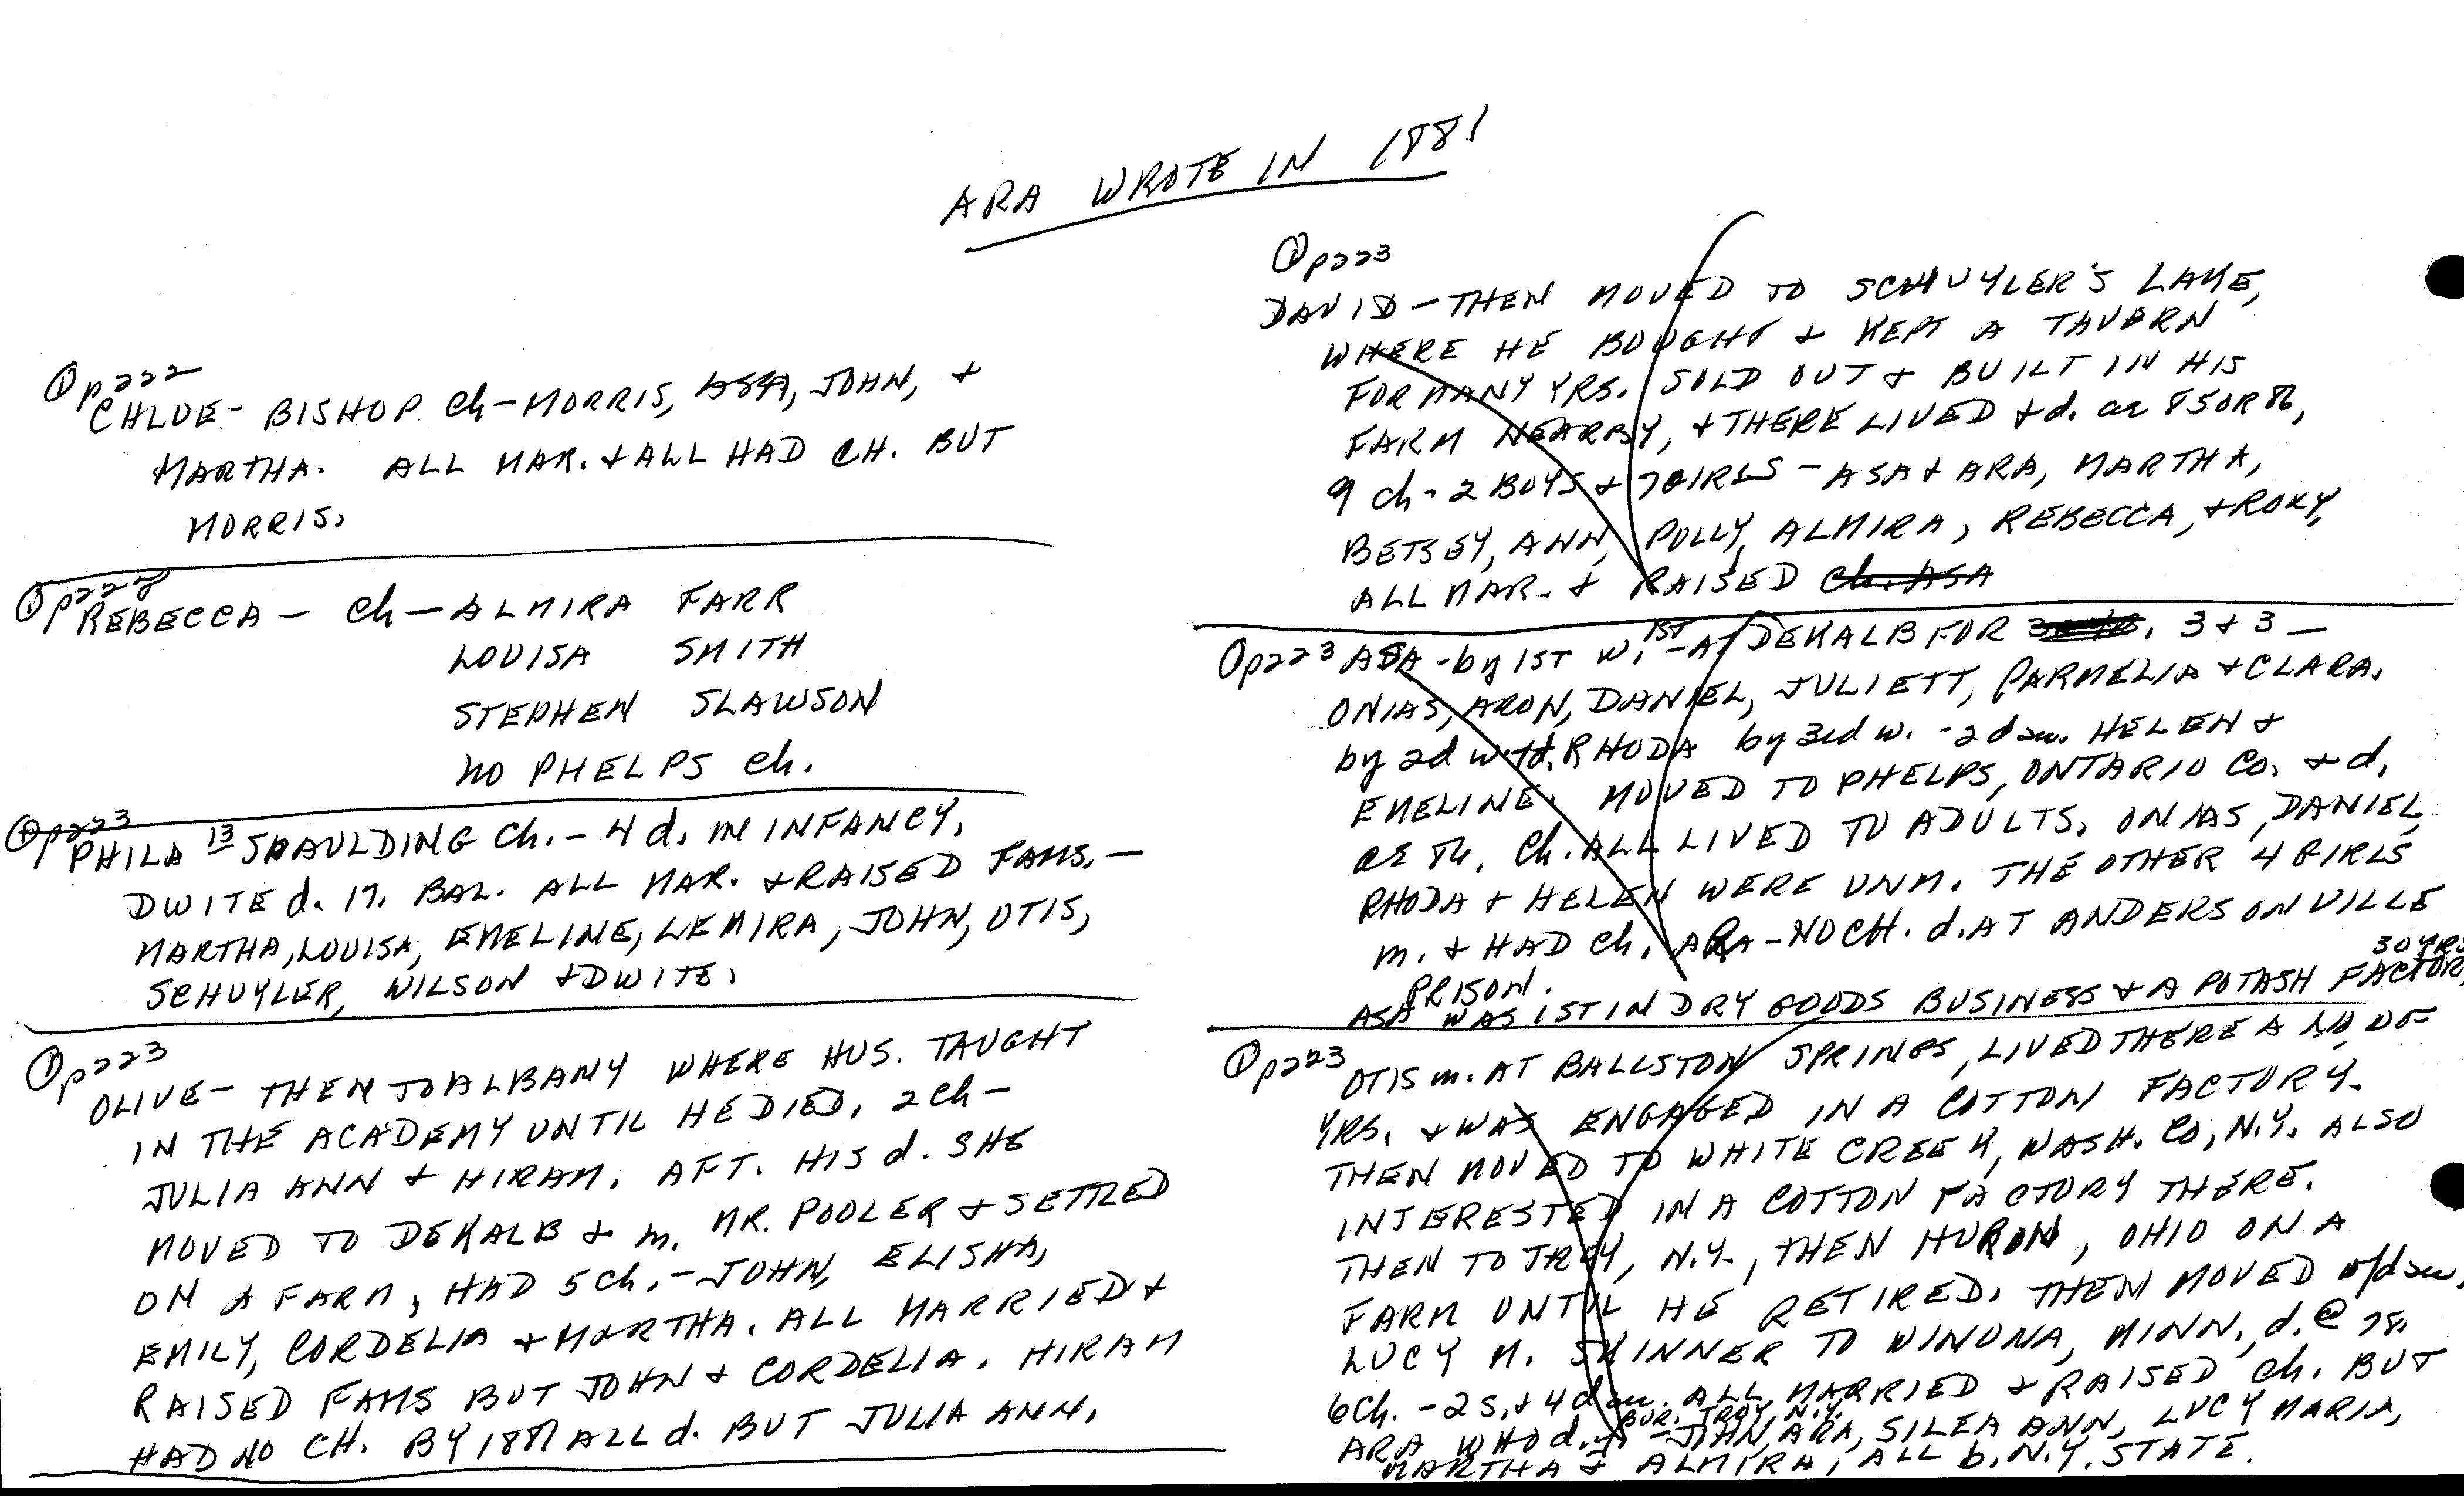 ARA WROTE IN 1881
① p222
CHLOE - BISHOP. Ch - MORRIS, ASA, JOHN, +
MARTHA. ALL MAR. + ALL HAD CH. BUT
MORRIS.
① p227
REBECCA - Ch - ALMIRA FARR
LOUISA SMITH
STEPHEN SLAWSON
NO PHELPS Ch.
① p223
PHILA 13 SPAULDING Ch. - 4 d. in INFANCY.
DWITE d. 17. BAL. ALL MAR. + RAISED FAMS. -
MARTHA, LOUISA, EMELINE, LEMIRA, JOHN, OTIS,
SCHUYLER, WILSON + DWITE.
① p223
OLIVE - THEN TO ALBANY WHERE HUS. TAUGHT
IN THE ACADEMY UNTIL HE DIED, 2 Ch -
JULIA ANN + HIRAM. AFT. HIS d. SHE
MOVED TO DEKALB + m. MR. POOLER + SETTLED
ON A FARM, HAD 5 Ch. - JOHN, ELISHA,
EMILY, CORDELIA + MARTHA. ALL MARRIED +
RAISED FAMS BUT JOHN + CORDELIA. HIRAM
HAD NO CH. BY 1881 ALL d. BUT JULIA ANN.
① p223
DAVID - THEN MOVED TO SCHUYLER'S LAKE,
WHERE HE BOUGHT + KEPT A TAVERN
FOR MANY YRS. SOLD OUT + BUILT IN HIS
FARM NEARBY, + THERE LIVED + d. ae 85 OR 86,
9 ch - 2 BOYS + 7 GIRLS - ASA + ARA, MARTHA,
BETSEY, ANN, POLLY, ALMIRA, REBECCA, + ROXY,
ALL MAR. + RAISED Ch. ASA
① p223 ASA - by 1ST w. 1ST - AT DEKALB FOR 3 + 3 -
ONIAS, ARON, DANIEL, JULIETT, PARMELIA + CLARA.
by 2d w. RHODA by 3rd w. - 2 dau. HELEN +
EMELINE. MOVED TO PHELPS, ONTARIO CO. + d.
ae 86. Ch. ALL LIVED TO ADULTS. ONIAS, DANIEL,
RHODA + HELEN WERE UNM. THE OTHER 4 GIRLS
m. + HAD Ch. ARA - NO CH. d. AT ANDERSONVILLE
PRISON. 30 YRS
ASA WAS 1ST IN DRY GOODS BUSINESS + A POTASH FACTOR,
① p223 OTIS m. AT BALLSTON SPRINGS, LIVED THERE A NO. OF
YRS. + WAS ENGAGED IN A COTTON FACTORY.
THEN MOVED TO WHITE CREEK, WASH. CO, N.Y. ALSO
INTERESTED IN A COTTON FACTORY THERE.
THEN TO TROY, N.Y., THEN HURON, OHIO ON A
FARM UNTIL HE RETIRED. THEN MOVED w/dau,
LUCY M. SKINNER TO WINONA, MINN., d. @ 78.
6 Ch. - 2 S. + 4 dau. ALL MARRIED + RAISED Ch. BUT
BUR. TROY, N.Y.
ARA WHO d. - JOHN, ARA, SILEA ANN, LUCY MARIA,
MARTHA + ALMIRA, ALL b. N.Y. STATE.